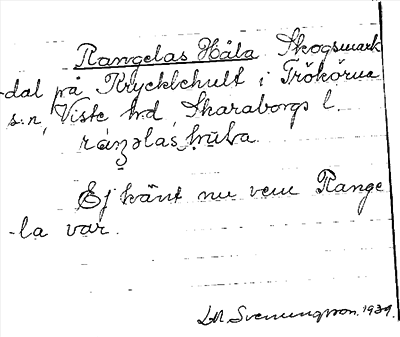 Rangelas Håla. Skogsmark
-dal på Krycklehult i Trökörna
s:n, Viste hd, Skaraborgs l.
Ej känt nu vem Range
-la var.
LM Svenungsson. 1939.